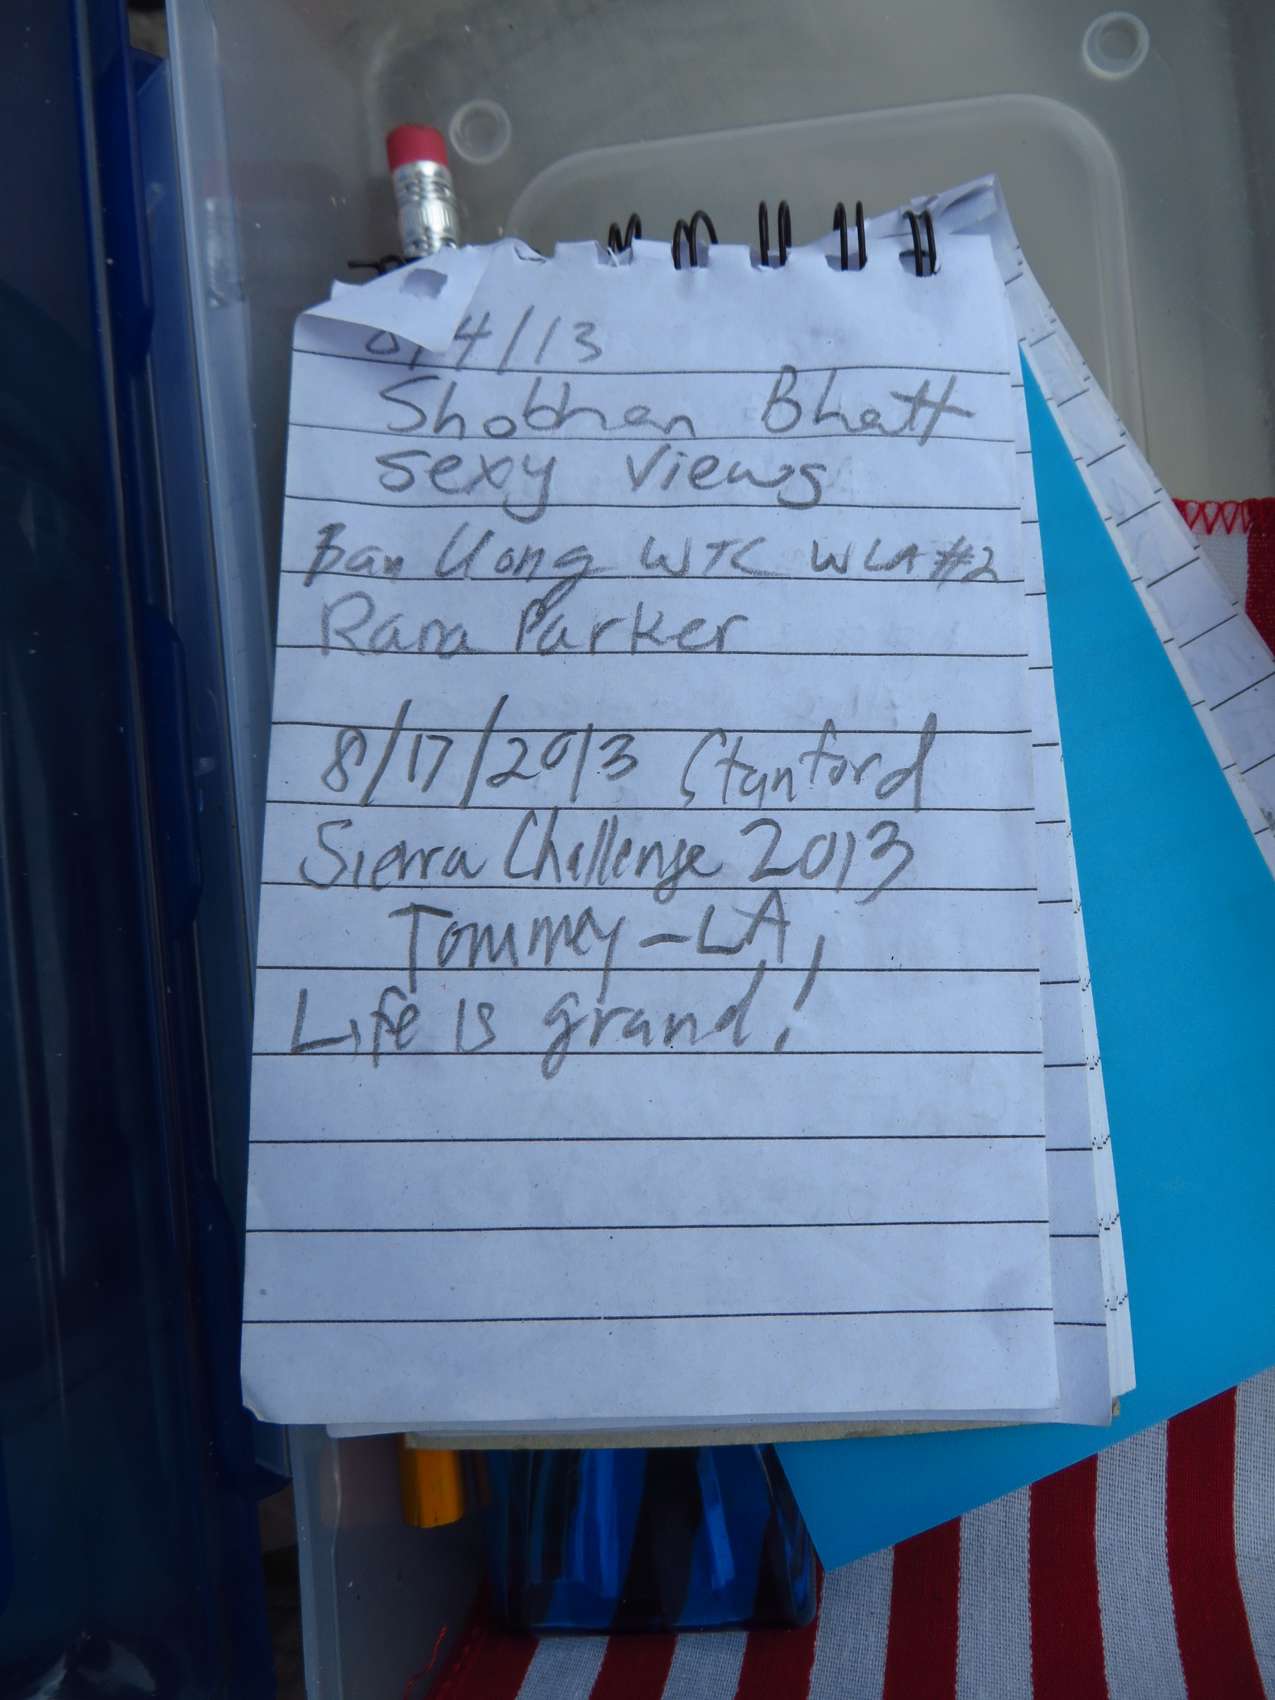 8/4/13
Shobhan Bhatt
sexy views
Ban Uong WTC WLA #2
Rana Parker
8/17/2013 Stanford
Sierra Challenge 2013
Tommey - LA,
Life is grand!